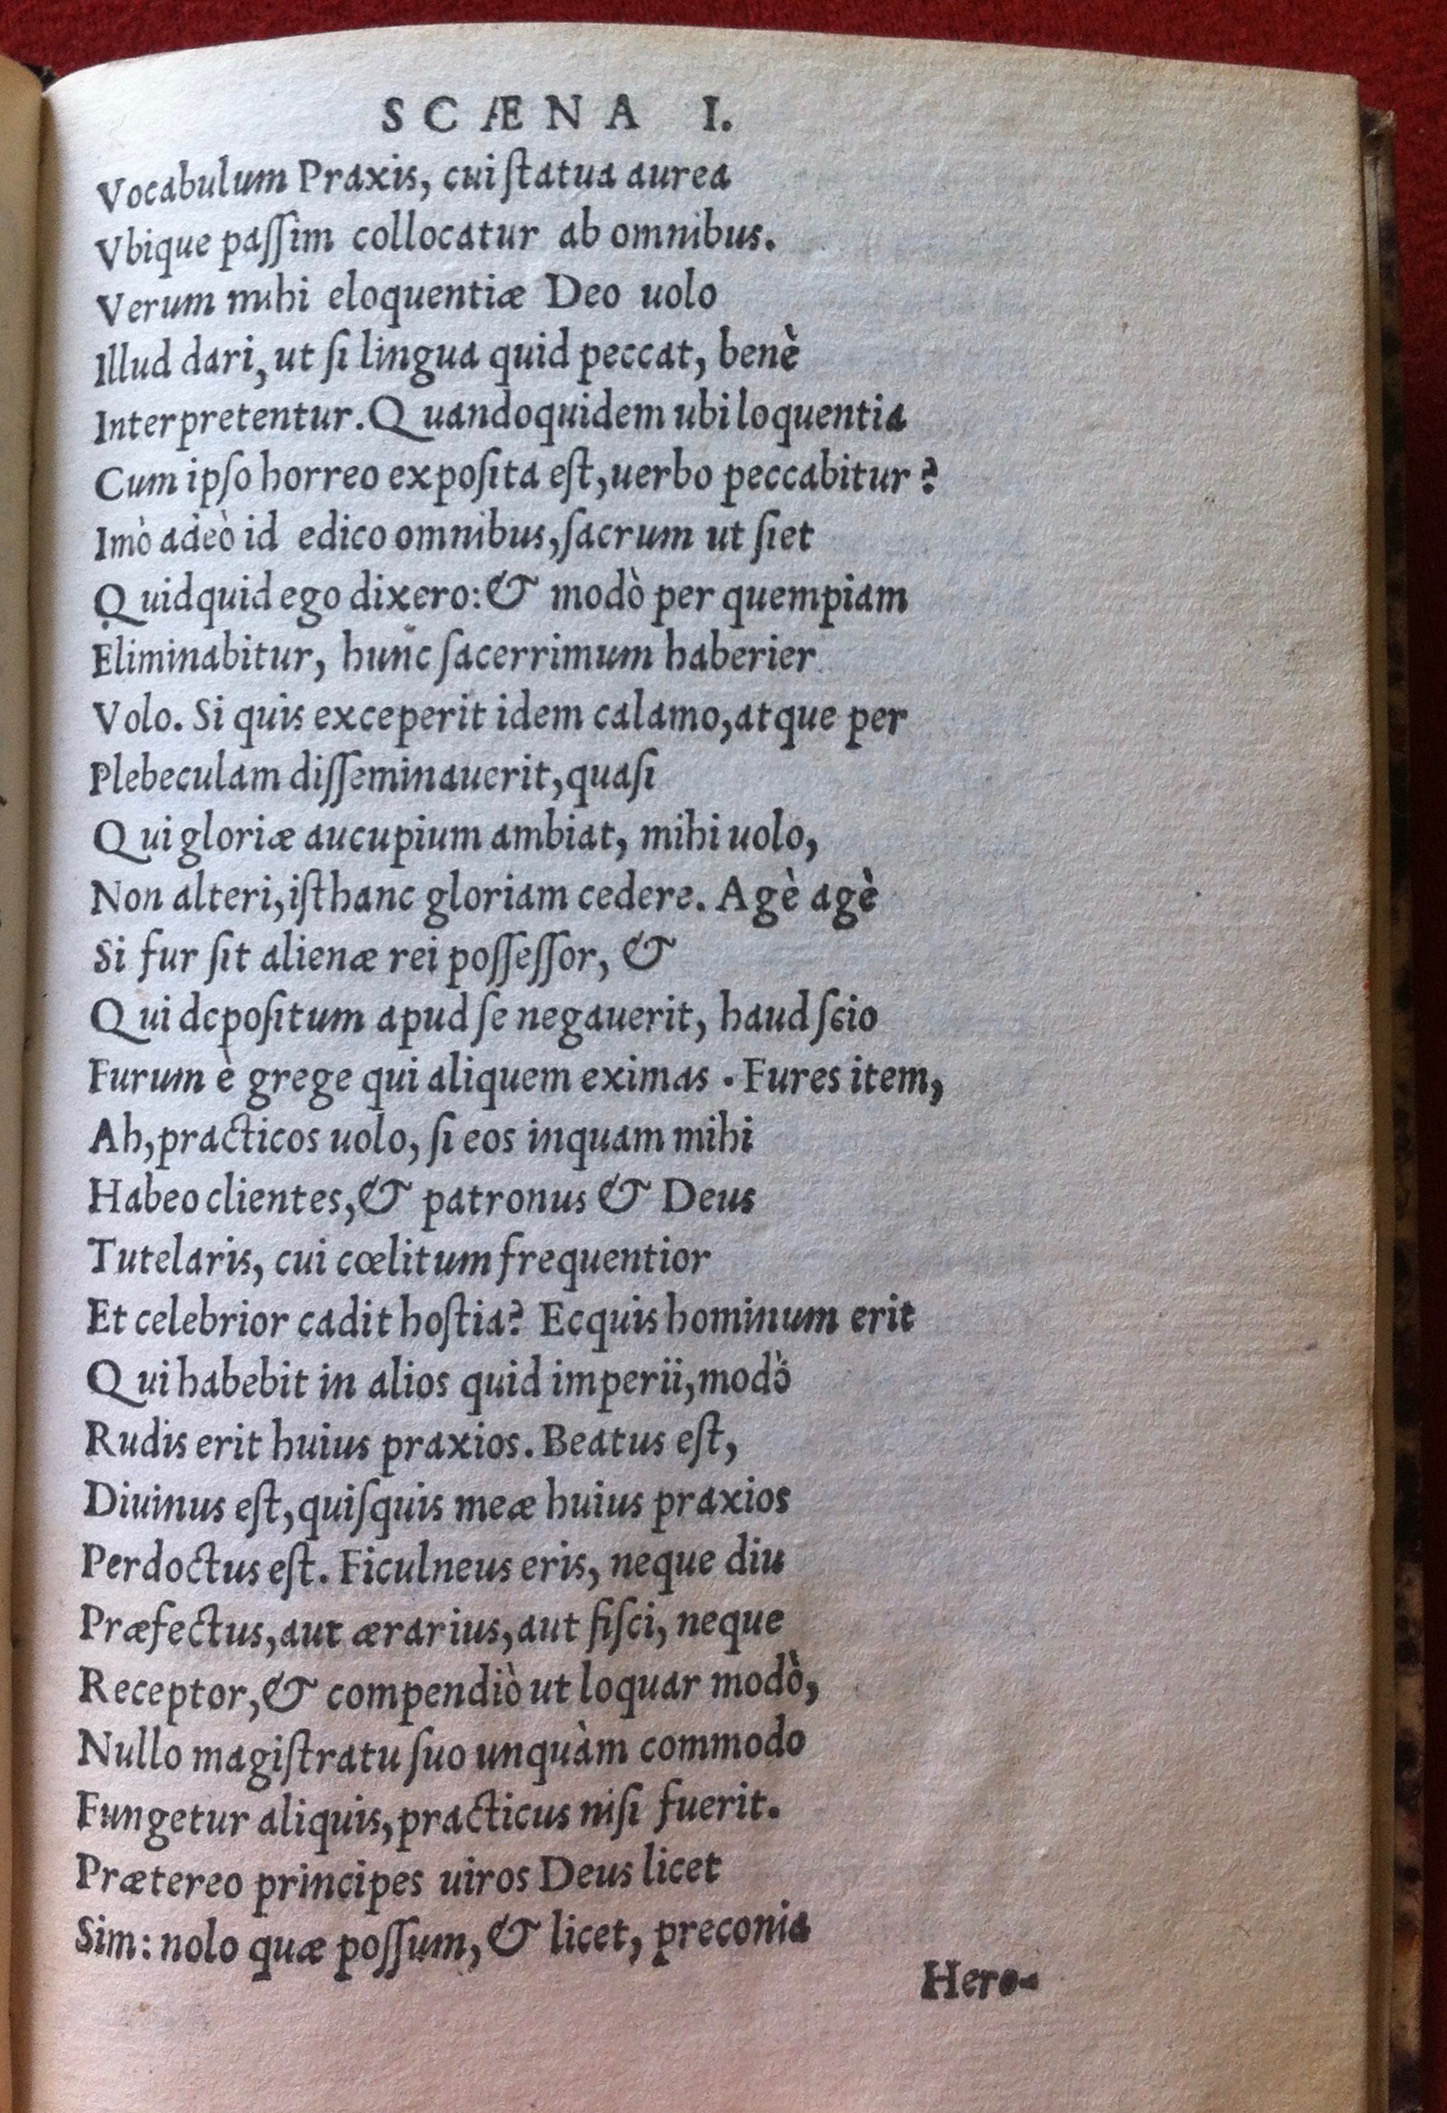 SCÆNA I.
Vocabulum Praxis, cui ſtatua aurea
Vbique paſſim collocatur ab omnibus.
Verum mihi eloquentiæ Deo uolo
Illud dari, ut ſi lingua quid peccat, benè
Interpretentur. Quandoquidem ubi loquentia
Cum ipſo horreo expoſita eſt, uerbo peccabitur?
Imò adeò id edico omnibus, ſacrum ut ſiet
Quidquid ego dixero: & modò per quempiam
Eliminabitur, hunc ſacerrimum haberier
Volo. Si quis exceperit idem calamo, atque per
Plebeculam diſſeminauerit, quaſi
Qui gloriæ aucupium ambiat, mihi uolo,
Non alteri, iſthanc gloriam cedere. Agè agè
Si fur ſit alienæ rei poſſeſſor, &
Qui depoſitum apud ſe negauerit, haud ſcio
Furum è grege qui aliquem eximas. Fures item,
Ah, practicos uolo, ſi eos inquam mihi
Habeo clientes, & patronus & Deus
Tutelaris, cui cœlitum frequentior
Et celebrior cadit hoſtia? Ecquis hominum erit
Qui habebit in alios quid imperii, modò
Rudis erit huius praxios. Beatus eſt,
Diuinus eſt, quiſquis meæ huius praxios
Perdoctus eſt. Ficulneus eris, neque diu
Præfectus, aut ærarius, aut fiſci, neque
Receptor, & compendiò ut loquar modò,
Nullo magiſtratu ſuo unquàm commodo
Fungetur aliquis, practicus niſi fuerit.
Prætereo principes uiros Deus licet
Sim: nolo quæ poſſum, & licet, preconia
Hero-